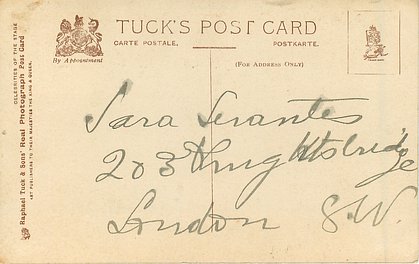 TUCK'S POST CARD
CARTE POSTALE.
POSTKARTE.
By Appointment
(FOR ADDRESS ONLY)
CELEBRITIES OF THE STAGE
Raphael Tuck & Sons' Real Photograph Post Card
ART PUBLISHERS TO THEIR MAJESTIES THE KING & QUEEN.
Sara Serantes
203 Knightsbridge
London S.W.